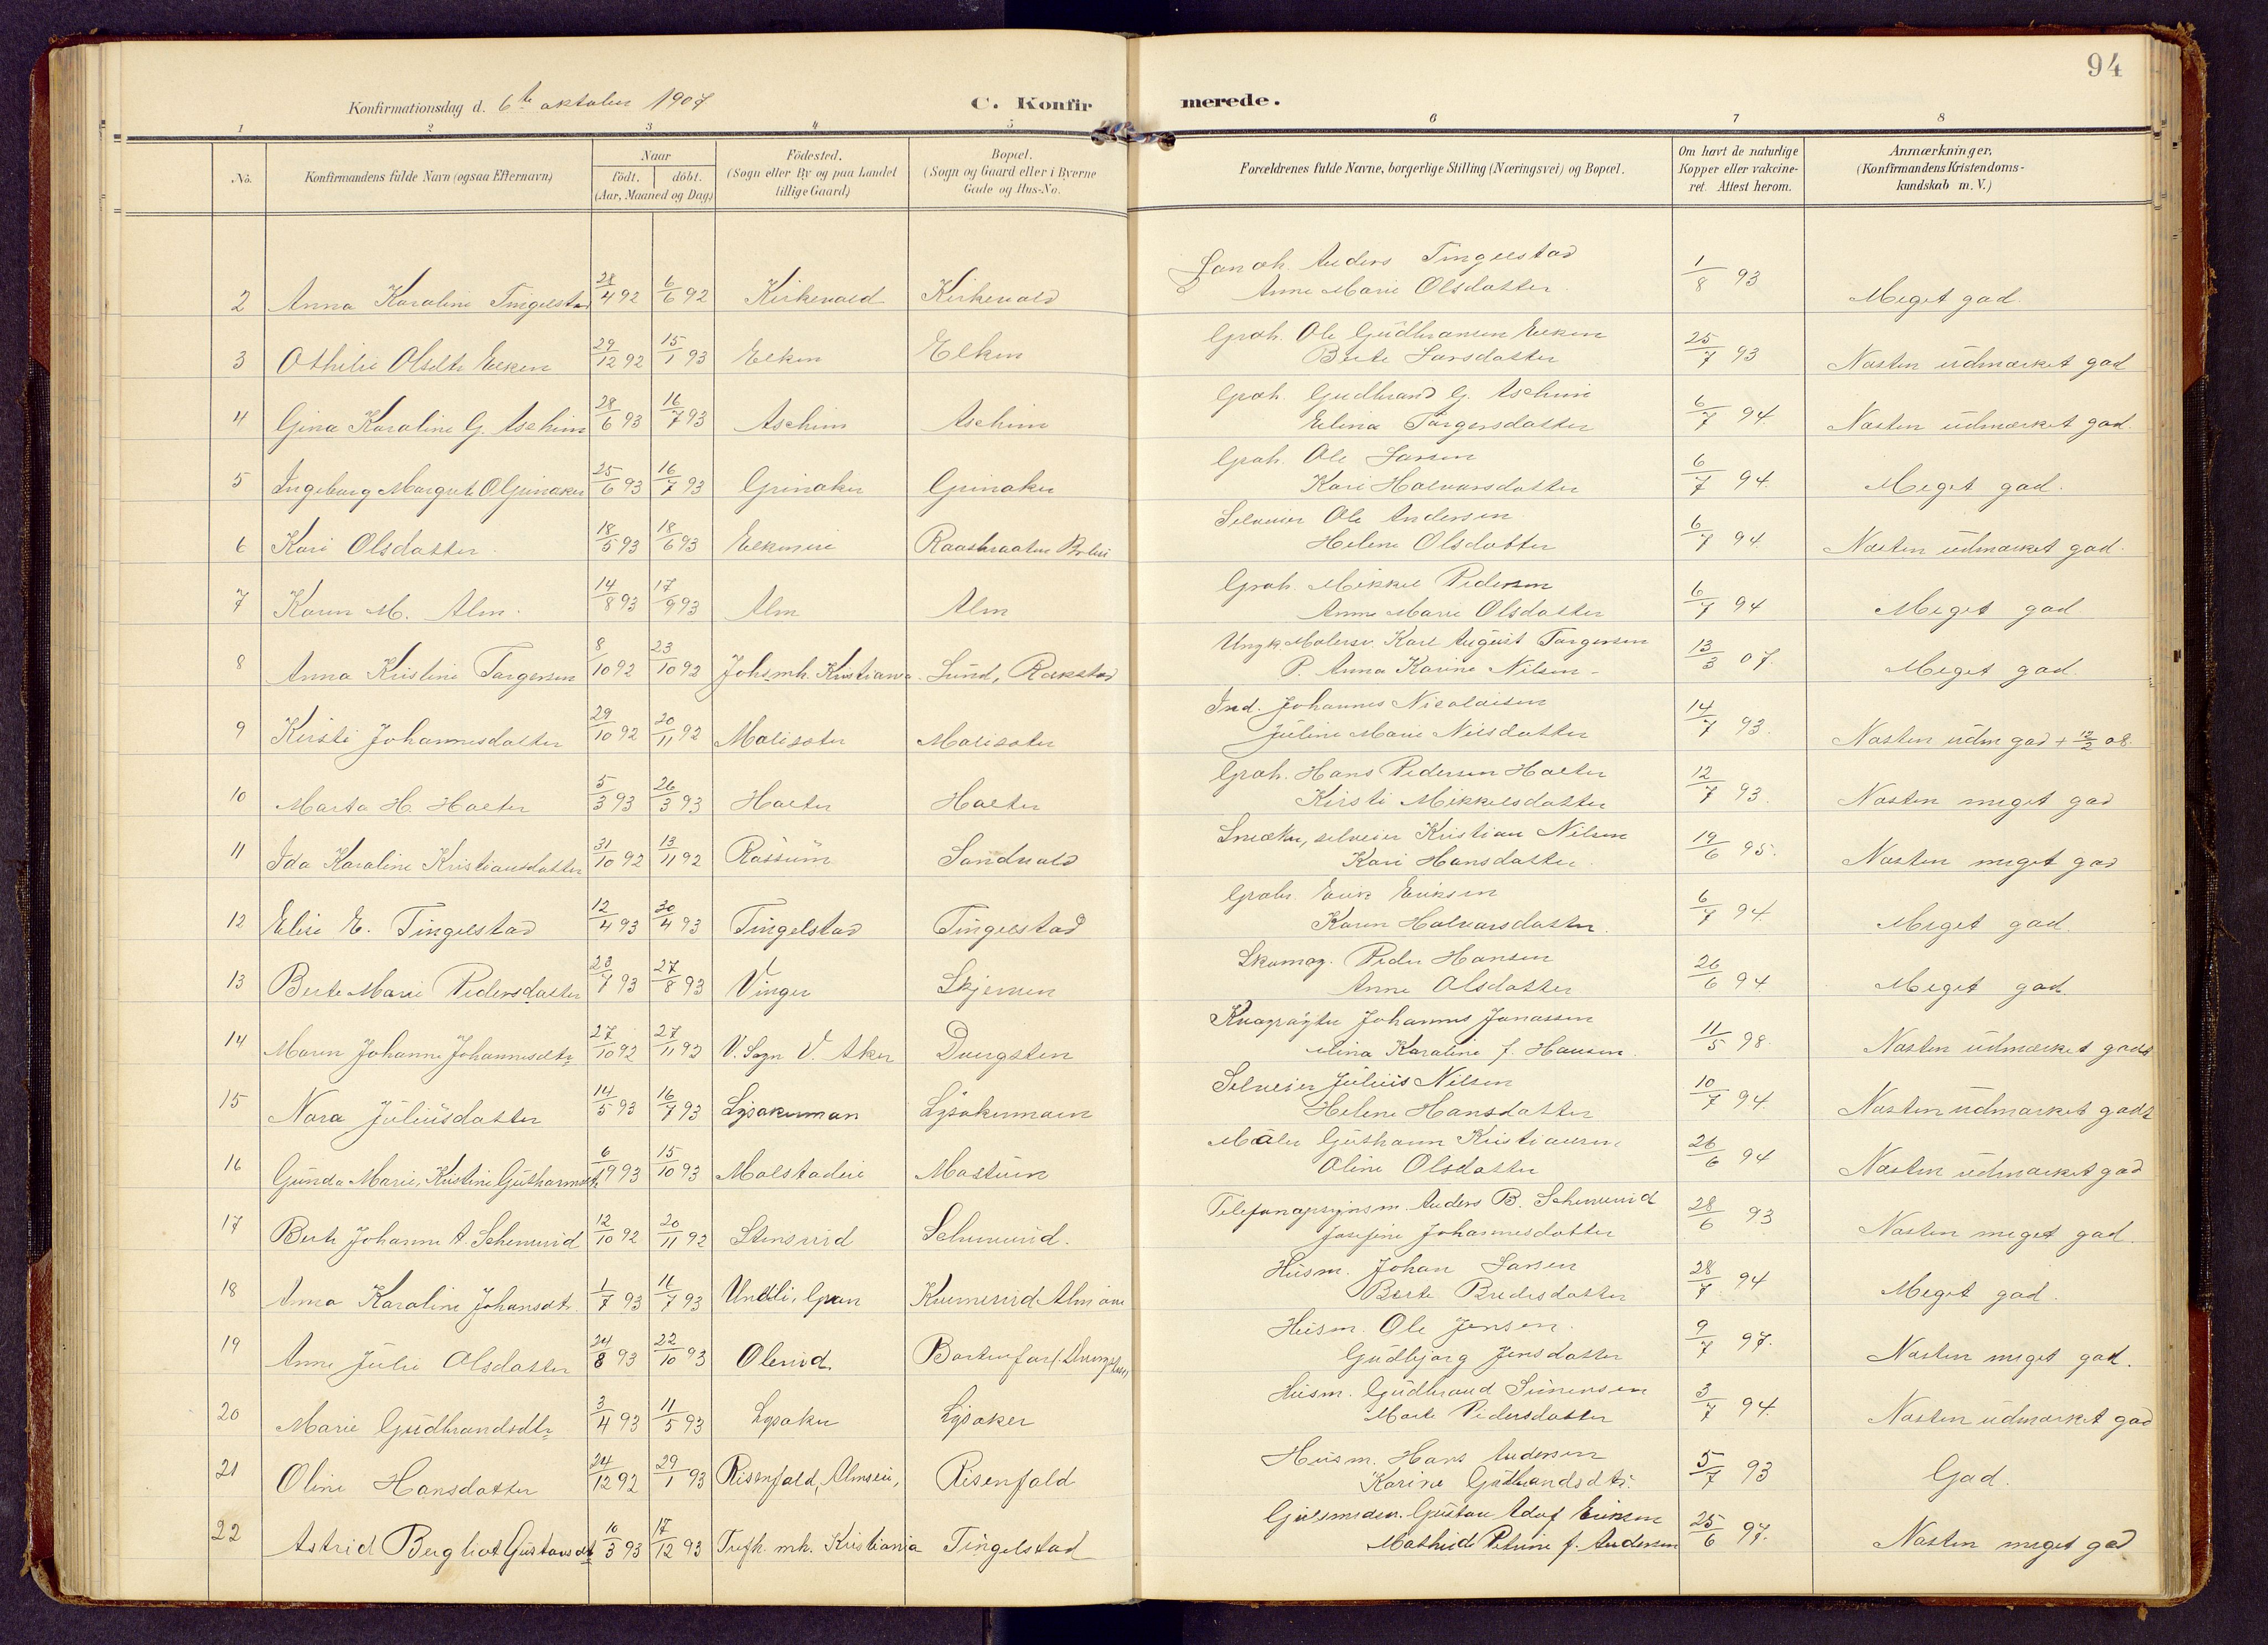 94
Konfirmationsdag d. 6te oktober 1907
C. Konfirmerede.
1 2 3 4 5 6 7 8
No. Konfirmandens fulde Navn (ogsaa Efternavn) Naar födt. döbt. (Aar, Maaned og Dag) Födested. (Sogn eller By og paa Landet tillige Gaard) Bopæl. (Sogn og Gaard eller i Byerne Gade og Hus-No. Forældrenes fulde Navne, borgerlige Stilling (Næringsvei) og Bopæl. Om havt de naturlige Kopper eller vakcineret. Attest herom. Anmærkninger. (Konfirmandens Kristendomskundskab m. V.)
2 Anna Karoline Tingelstad 28/4 92 6/6 92 Kirkevold Kirkevold Anders Tingelstad Anne Marie Olsdatter 1/8 93 Meget god.
3 Othilie Olsdtr Elken 29/12 92 15/1 93 Elken Elken Grdh. Ole Gudbransen Elken Berte Larsdatter 25/7 93 Næsten udmærket god
4 Gina Karoline G. Aschim 28/6 93 16/7 93 Aschim Aschim Grdh. Gudbrand G. Aschim Elina Torgersdatter 6/7 94. Næsten udmærket god.
5 Ingeborg Margrete O Grinaker 25/6 93 16/7 93 Grinaker Grinaker Grdh. Ole Larsen Kari Halvorsdatter 6/7 94. Meget god.
6 Kari Olsdatter. 18/5 93 18/6 93 Elkeneie Selveier Ole Andersen Helene Olsdatter 6/7 94. Næsten udmærket god.
7 Karen M. Alm. 14/8 93 17/9 93 Alm Alm Grdh. Mikkel Pedersen Anne Marie Olsdatter 6/7 94 Meget god
8 Anna Kristine Torgersen 8/10 92 23/10 92 Lund, Rækstad Ungk. Malersv. Karl August Torgersen P. Anna Karine Nilsen - 13/3 07. Meget god.
9 Kirsti Johannesdatter 29/10 92 20/11 92 Moliseter Moliseter Ind. Johannes Nicolaisen Juline Marie Nilsdatter 14/7 93. Næsten udm god + 12/2 08.
10 Marta H. Holter 5/3 93 26/3 93 Holter Holter Grdh. Hans Pedersen Holter Kirsti Mikkelsdatter 12/7 93. Næsten meget god
11 Ida Karoline Kristiansdatter 31/10 92 13/11 92 Røssum Sandvold Snedker, selveier Kristian Nilsen Kari Hansdatter. 19/6 95. Næsten meget god
12 Elise E. Tingelstad 12/4 93 30/4 93 Tingelstad Tingelstad Grdbr. Erik Eriksen Karen Halvorsdatter. 6/7 94. Meget god.
13 Berte Marie Pedersdatter 23/7 93 27/8 93 Vinger Skjerven Skomag. Peder Hansen Anne Olsdatter 26/6 94. Meget god.
14 Maren Johanne Johannesdtr 27/10 92 27/11 92 V. Sogn V. Aker Dvergsten Johannes Jonassen Mina Karoline f. Hansen. 11/5 98. Næsten udmærket godt
15 Nora Juliusdatter 14/5 93 16/7 93 Lysakermoen Lysakermoen Selveier Julius Nilsen Helene Hansdatter 10/7 94. Næsten udmærket godt
16 Gunda Marie Kristine Guthormsdtr 6/9 93 15/10 93 Molstadeie Mostuen Maler Guthorm Kristiansen Oline Olsdatter 26/6 94 Næsten udmærket god
17 Berte Johanne A. Schiervud 12/10 92 20/11 92 Stensrud Telefonopsynsm. Anders B. Josefine Johannesdatter 28/6 93 Næsten meget god.
18 Anna Karoline Johansdtr. 1/7 93 16/7 93 Undeli, Gran Husm. Johan Larsen Berte Bredesdatter 28/7 94 Meget god.
19 Anne Julie Olsdatter 24/8 93 22/10 93 Olerud. Husm. Ole Jensen. Gudbjørg Jensdatter 9/7 97. Næsten meget god.
20 Marie Gudbrandsdtr 3/4 93 11/5 93 Lysaker Lysaker Husm. Gudbrand Simensen Marte Pedersdatter 3/7 94. Næsten udmærket god
21 Oline Hansdatter 24/12 92 29/1 93 Risenfald, Almseie, Risenfald Husm. Hans Andersen Karine Gudbrandsdtr. 5/7 93 God.
22 Astrid Bergliot Gustavsdtr 10/3 93 17/12 93 Tufh. mh. Kristiania Tingelstad Gustav Adolf Eriksen Mathilde Petrine f. Andersen 25/6 97. Næsten meget god